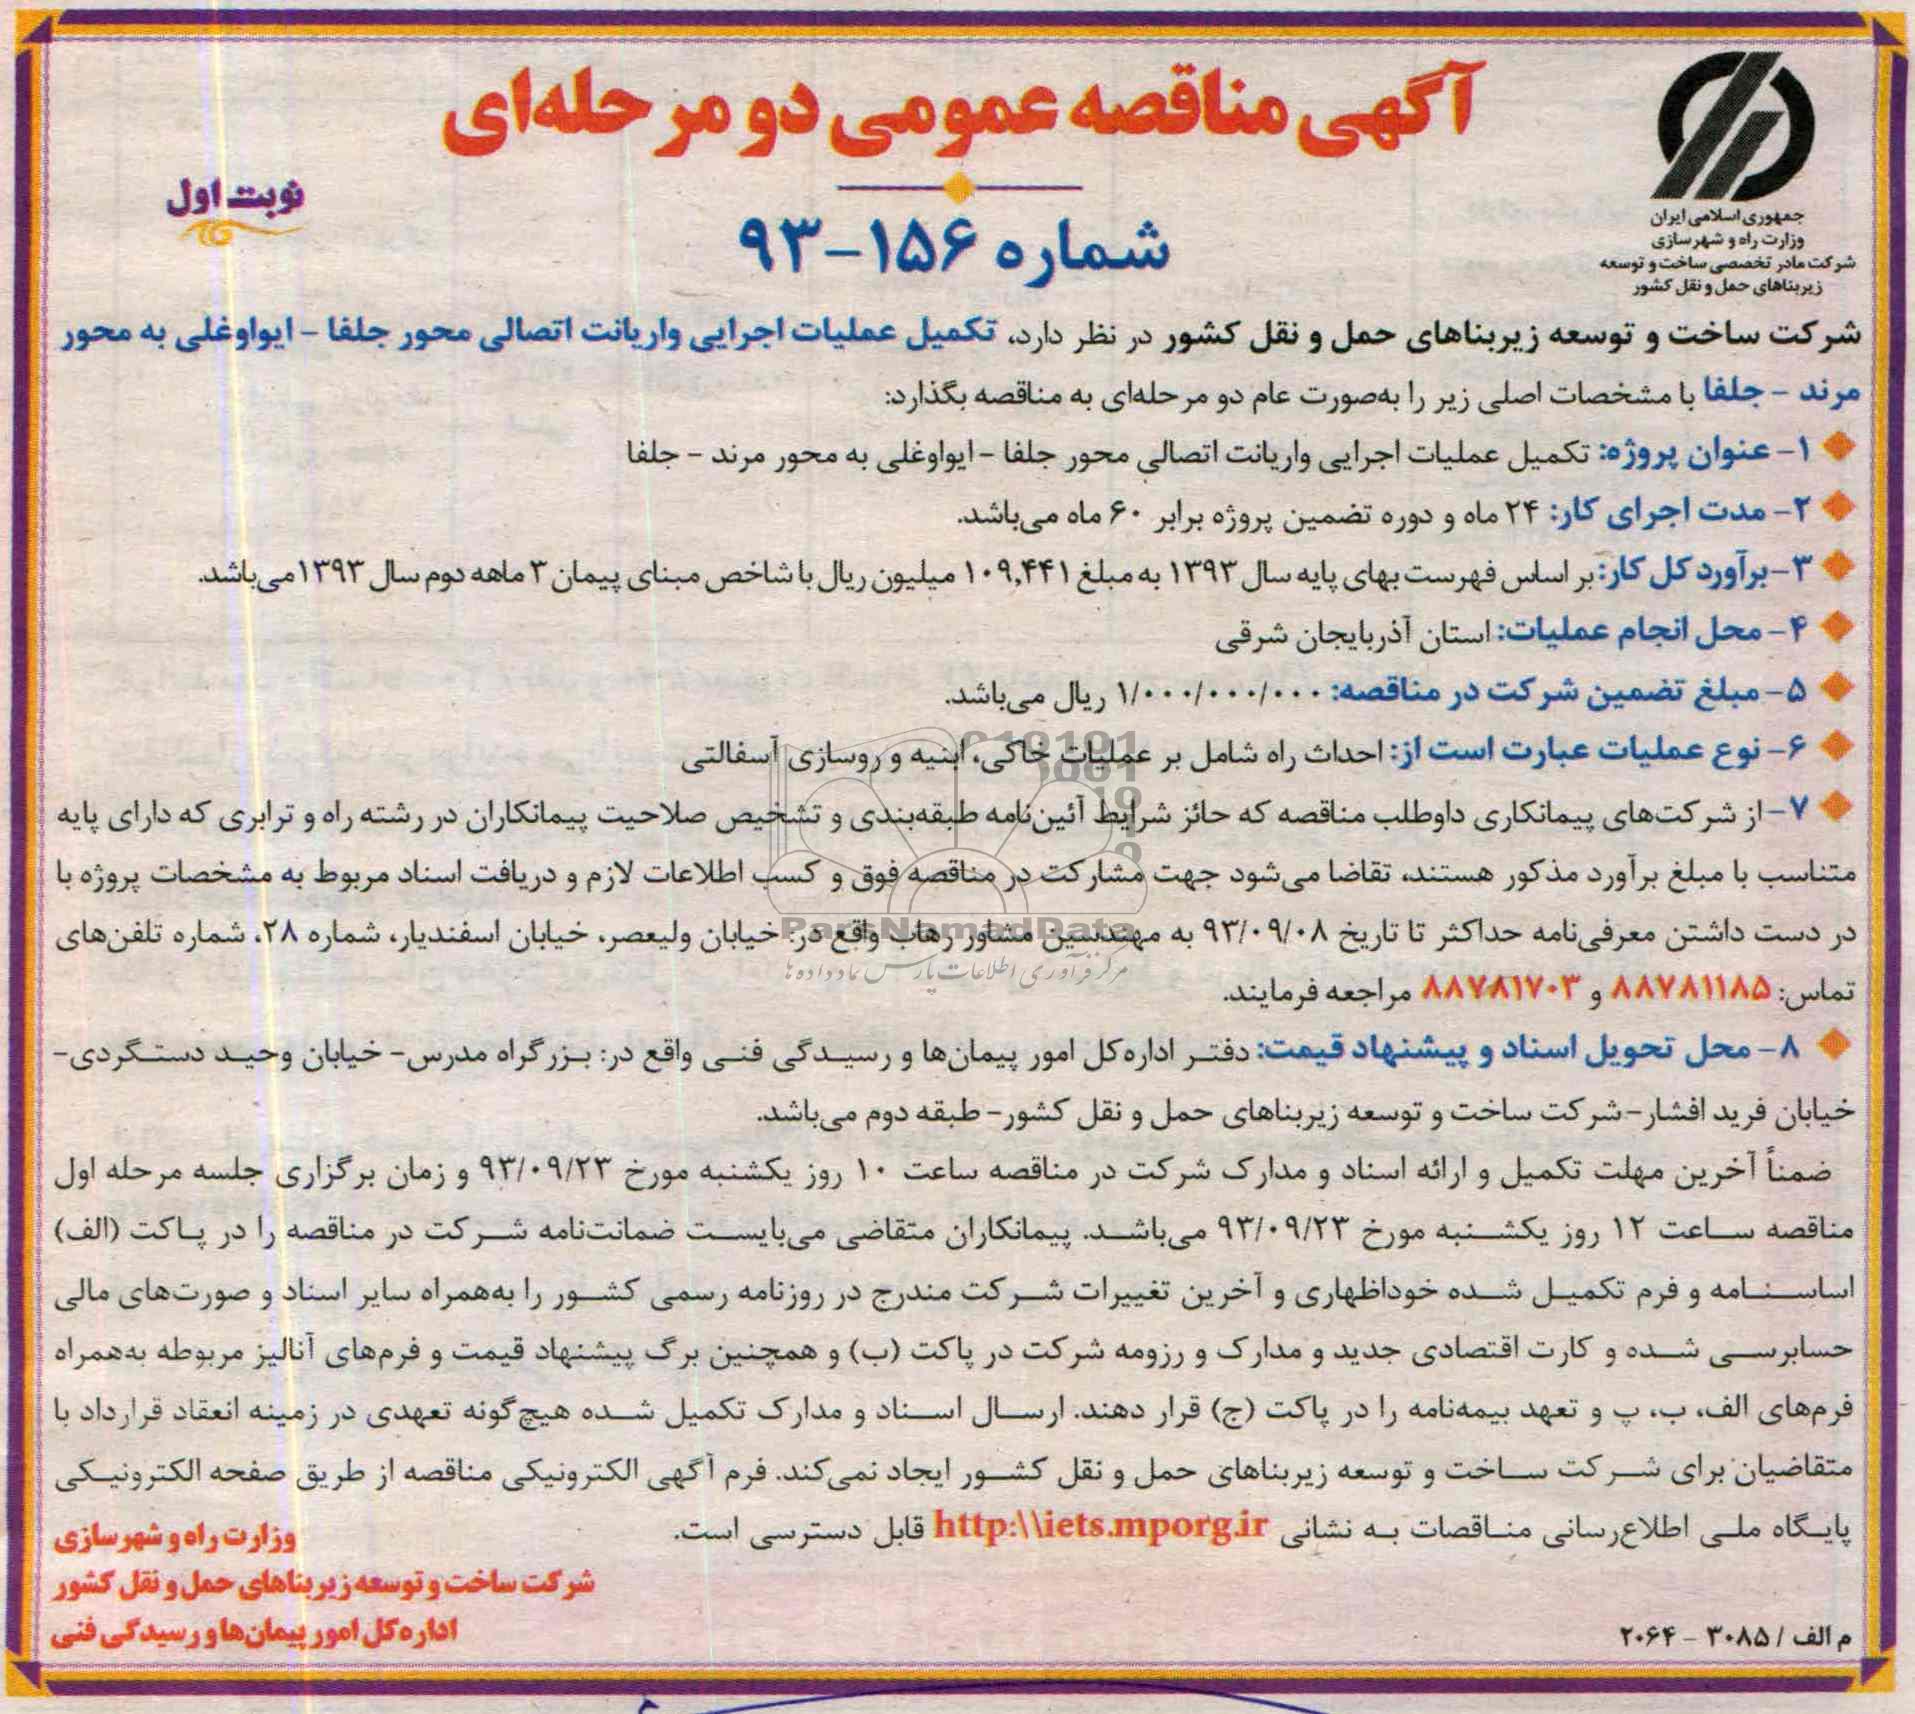 آگهی مناقصه عمومی دو مرحله‌ای
نوبت اول
شماره ۱۵۶-۹۳
جمهوری اسلامی ایران
وزارت راه و شهرسازی
شرکت مادر تخصصی ساخت و توسعه
زیربناهای حمل و نقل کشور
شرکت ساخت و توسعه زیربناهای حمل و نقل کشور در نظر دارد، تکمیل عملیات اجرایی واریانت اتصالی محور جلفا - ایواوغلی به محور
مرند - جلفا با مشخصات اصلی زیر را به‌صورت عام دو مرحله‌ای به مناقصه بگذارد:
۱- عنوان پروژه: تکمیل عملیات اجرایی واریانت اتصالی محور جلفا -ایواوغلی به محور مرند - جلفا
۲- مدت اجرای کار: ۲۴ ماه و دوره تضمین پروژه برابر ۶۰ ماه می‌باشد.
۳-برآورد کل کار: بر اساس فهرست بهای پایه سال ۱۳۹۳ به مبلغ ۱۰۹,۴۴۱ میلیون ریال با شاخص مبنای پیمان ۳ ماهه دوم سال ۱۳۹۳ می‌باشد.
۴- محل انجام عملیات: استان آذربایجان شرقی
۵- مبلغ تضمین شرکت در مناقصه: ۱/۰۰۰/۰۰۰/۰۰۰ ریال می‌باشد.
۶- نوع عملیات عبارت است از: احداث راه شامل بر عملیات خاکی، ابنیه و روسازی آسفالتی
۷-از شرکت‌های پیمانکاری داوطلب مناقصه که حائز شرایط آئین‌نامه طبقه‌بندی و تشخیص صلاحیت پیمانکاران در رشته راه و ترابری که دارای پایه
متناسب با مبلغ برآورد مذکور هستند، تقاضا می‌شود جهت مشارکت در مناقصه فوق و کسب اطلاعات لازم و دریافت اسناد مربوط به مشخصات پروژه با
در دست داشتن معرفی‌نامه حداکثر تا تاریخ ۹۳/۰۹/۰۸ به مهندسین مشاور رهاب واقع در: خیابان ولیعصر، خیابان اسفندیار، شماره ۲۸، شماره تلفن‌های
تماس: ۸۸۷۸۱۱۸۵ و ۸۸۷۸۱۷۰۳ مراجعه فرمایند.
ParsNamadData
مرکز فرآوری اطلاعات پارس نماد داده ها
۸- محل تحویل اسناد و پیشنهاد قیمت: دفتر اداره‌کل امور پیمان‌ها و رسیدگی فنی واقع در: بزرگراه مدرس- خیابان وحید دستگردی-
خیابان فرید افشار-شرکت ساخت و توسعه زیربناهای حمل و نقل کشور- طبقه دوم می‌باشد.
ضمناً آخرین مهلت تکمیل و ارائه اسناد و مدارک شرکت در مناقصه ساعت ۱۰ روز یکشنبه مورخ ۹۳/۰۹/۲۳ و زمان برگزاری جلسه مرحله اول
مناقصه ساعت ۱۲ روز یکشنبه مورخ ۹۳/۰۹/۲۳ می‌باشد. پیمانکاران متقاضی می‌بایست ضمانت‌نامه شرکت در مناقصه را در پاکت (الف)
اساسنامه و فرم تکمیل شده خوداظهاری و آخرین تغییرات شرکت مندرج در روزنامه رسمی کشور را به‌همراه سایر اسناد و صورت‌های مالی
حسابرسی شده و کارت اقتصادی جدید و مدارک و رزومه شرکت در پاکت (ب) و همچنین برگ پیشنهاد قیمت و فرم‌های آنالیز مربوطه به‌همراه
فرم‌های الف، ب، پ و تعهد بیمه‌نامه را در پاکت (ج) قرار دهند. ارسال اسناد و مدارک تکمیل شده هیچ‌گونه تعهدی در زمینه انعقاد قرارداد با
متقاضیان برای شرکت ساخت و توسعه زیربناهای حمل و نقل کشور ایجاد نمی‌کند. فرم آگهی الکترونیکی مناقصه از طریق صفحه الکترونیکی
پایگاه ملی اطلاع‌رسانی مناقصات به نشانی http:\\iets.mporg.ir قابل دسترسی است.
وزارت راه و شهرسازی
شرکت ساخت و توسعه زیربناهای حمل و نقل کشور
اداره‌کل امور پیمان‌ها و رسیدگی فنی
م الف / ۳۰۸۵ - ۲۰۶۴